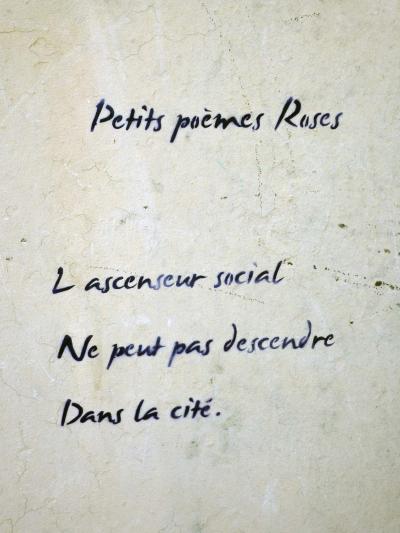 Petits poèmes Roses
L ascenseur social
Ne peut pas descendre
Dans la cité.